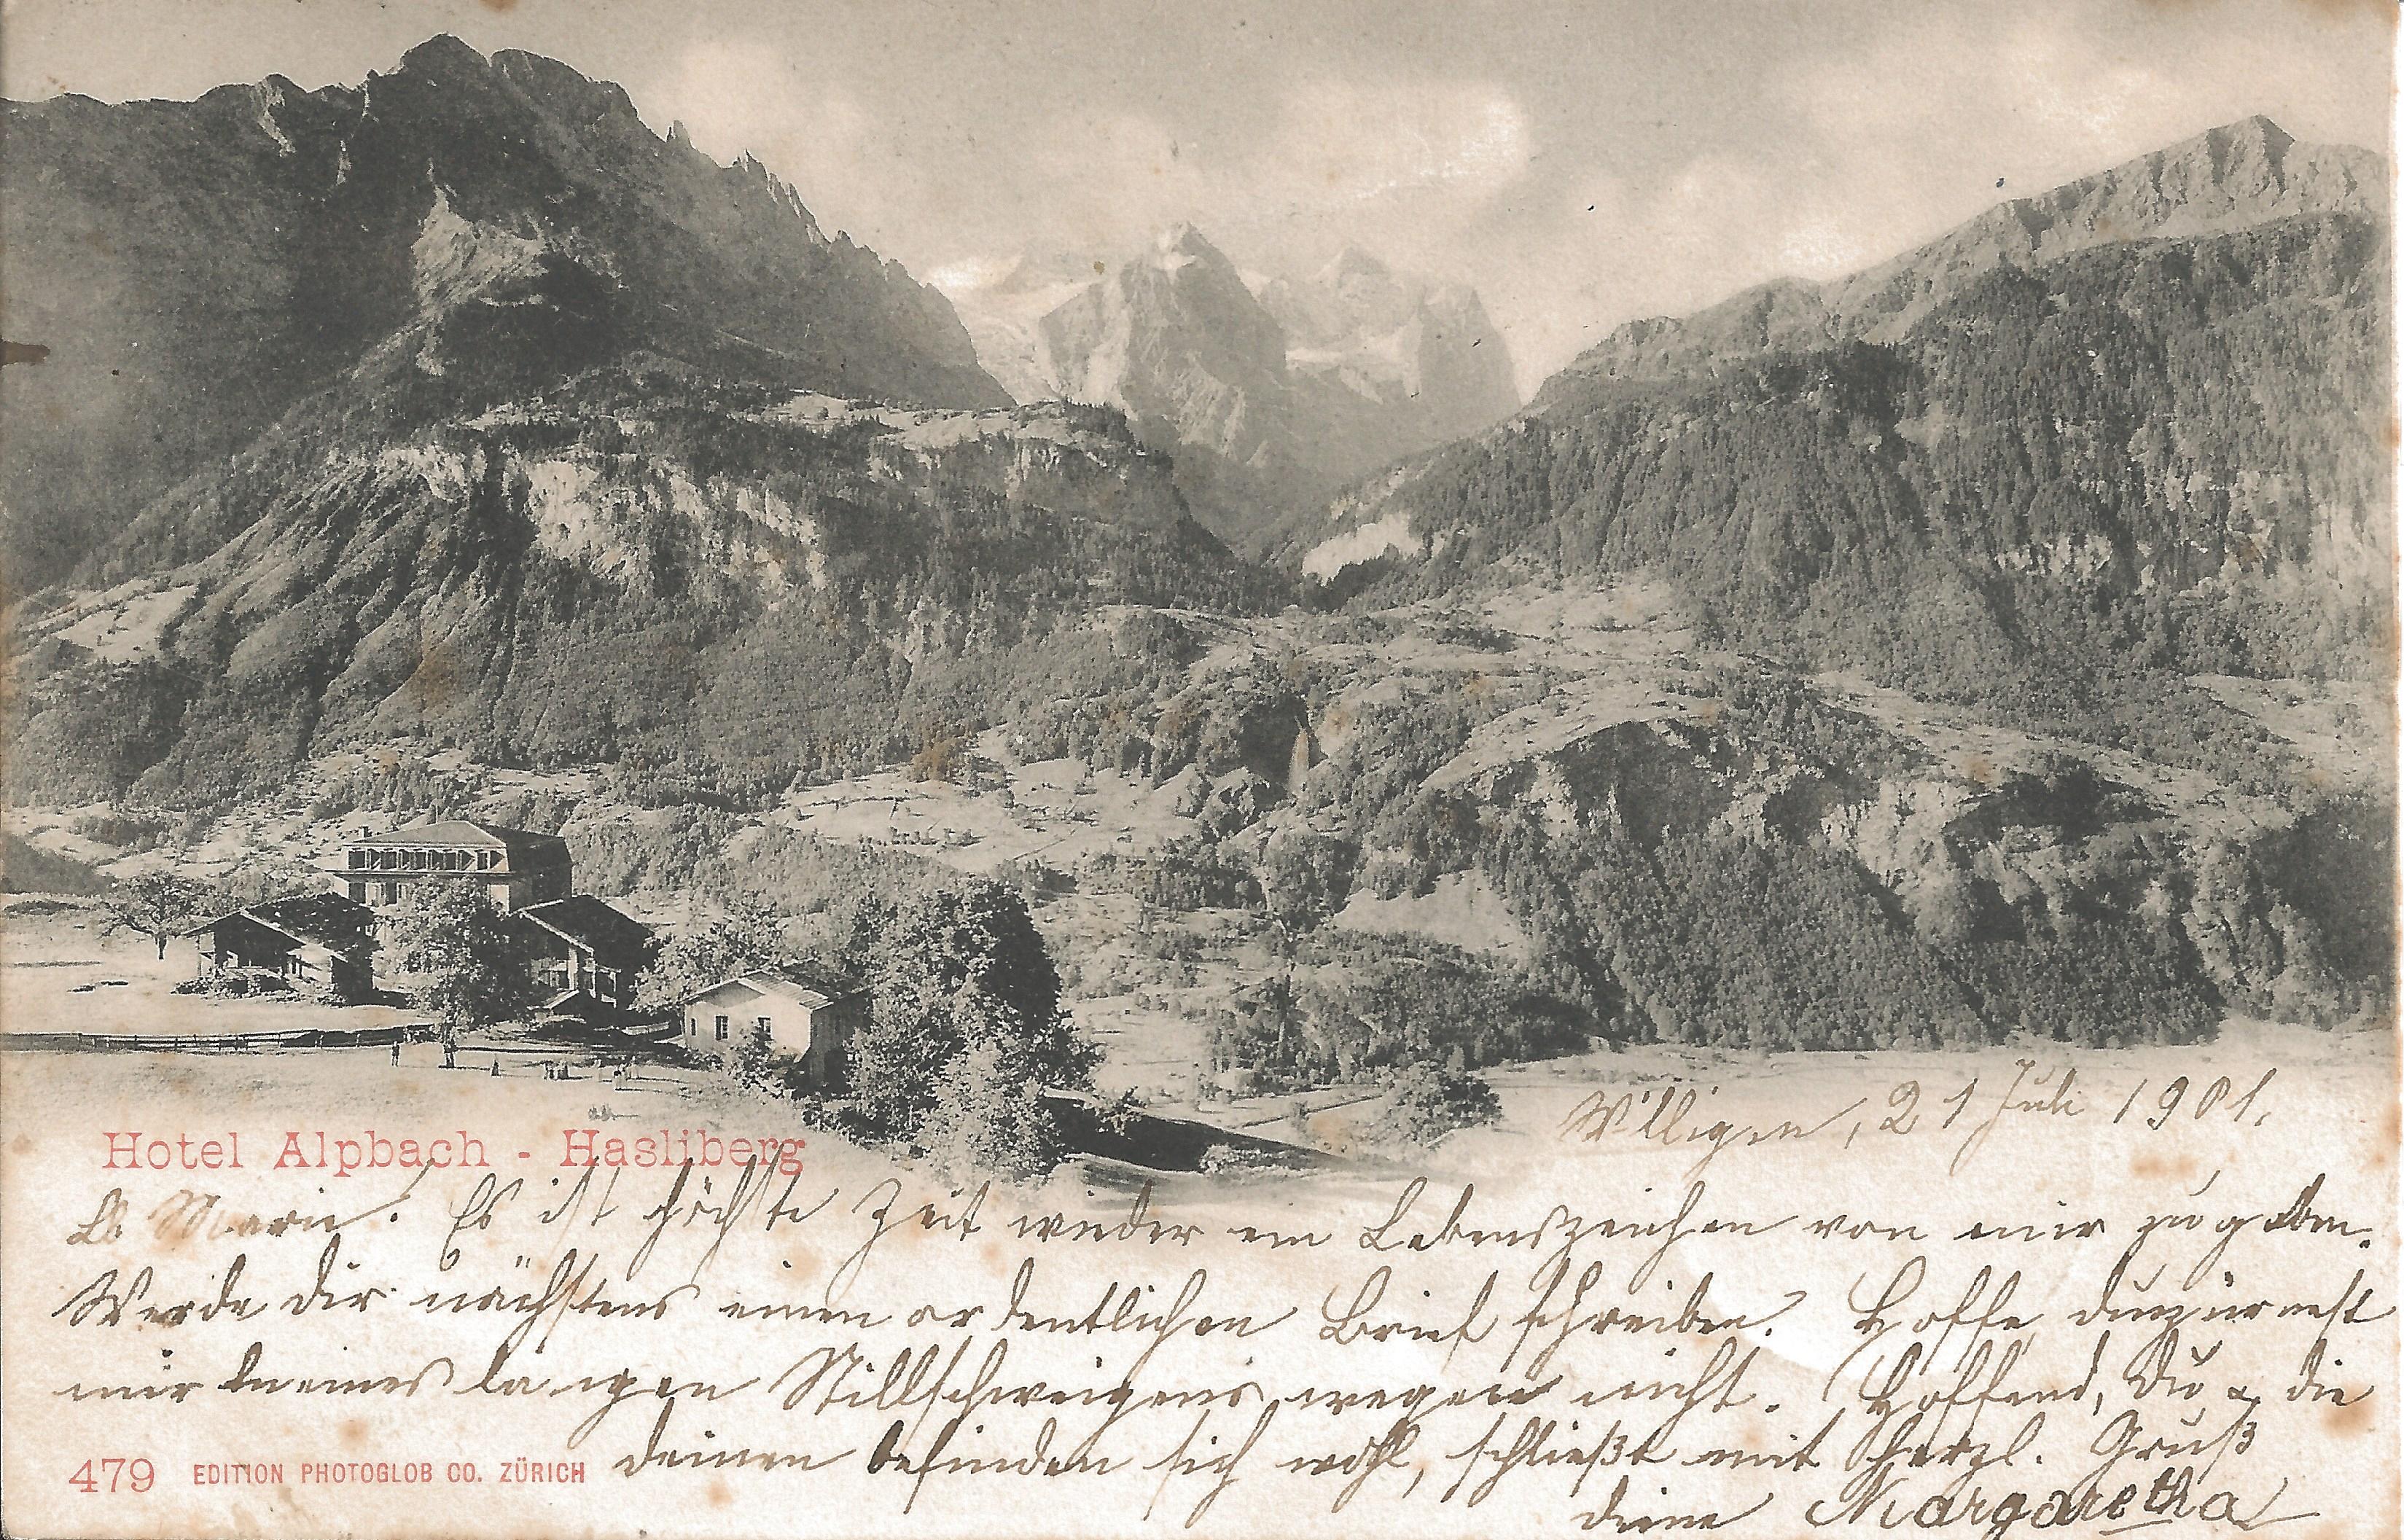 Willigen, 21 Juli 1901.
Hotel Alpbach - Hasliberg
Lb. Marie. Es ist höchste Zeit wieder ein Lebenszeichen von mir zu geben.
Werde dir nächstens einen ordentlichen Brief schreiben. Hoffe du zürnest
mir meines langen Stillschweigens wegen nicht. Hoffend, Du & die
deinen befinden sich wohl, schließt mit herzl. Gruß
479 EDITION PHOTOGLOB CO. ZÜRICH
deine Margaretha